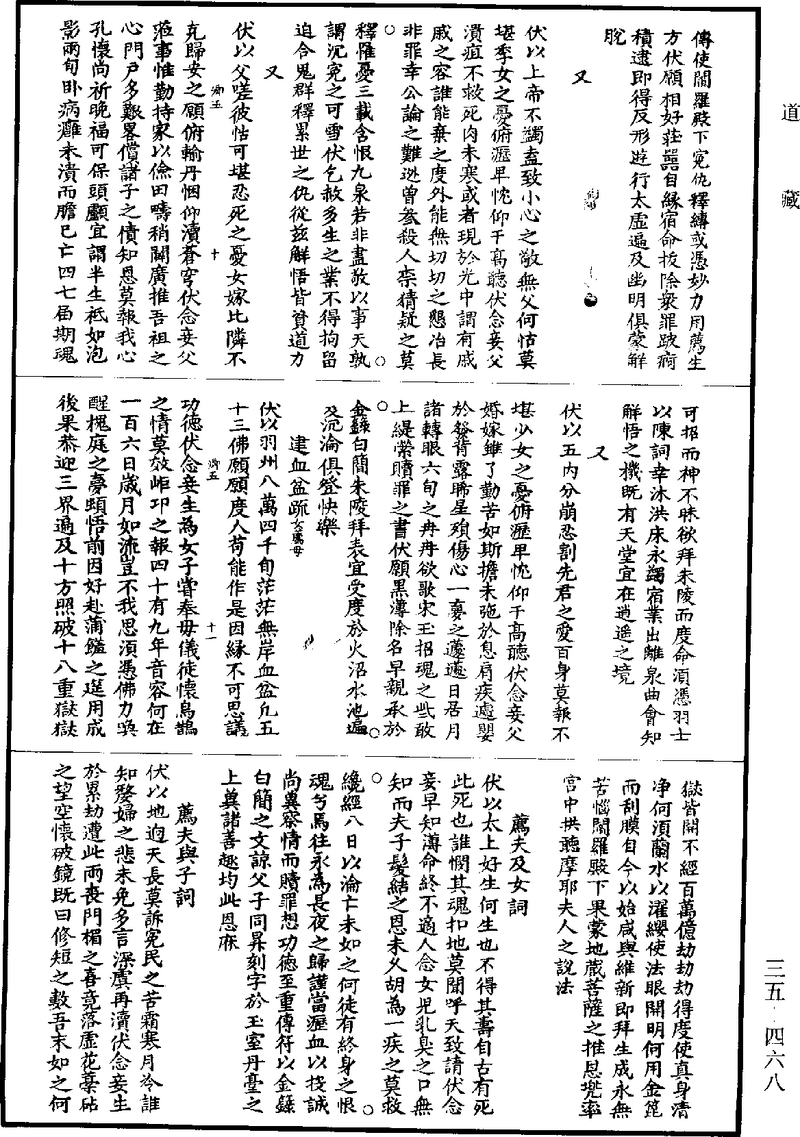 道藏
傳使閻羅殿下冤仇釋縛或憑妙力用薦生
方伏願相好莊嚴自緣宿命拔除眾罪跛痾
積逮即得反形遊行太虛遍及幽明俱蒙解
脫
又
伏以上帝不蠲盍致小心之敬無父何怙莫
堪季女之憂俯瀝卑忱仰干高聽伏念妾父
潰疽不救死肉未寒或者現於光中謂有戚
戚之容誰能棄之度外能無切切之懇冶長
非罪幸公論之難逃曾參殺人柰猜疑之莫
釋罹憂三載含恨九泉若非盡敬以事天孰
謂沉冤之可雪伏乞赦多生之業不得拘留
迫令鬼群釋累世之仇從茲解悟皆資道力
又
伏以父嗟彼怙可堪忍死之憂女嫁比隣不
卿五
十
克歸安之願俯輸丹悃仰瀆蒼穹伏念妾父
蒞事惟勤持家以儉田疇稍闢廣推吾祖之
心門戶多艱畧償諸子之債知恩莫報我心
孔懷尚祈晚福可保頭顱宜謂半生祇如泡
影兩旬卧病癰未潰而膽已亡四七届期魂
可招而神不昧欲拜朱陵而度命須憑羽士
以陳詞幸沐洪庥永蠲宿業出離泉曲會知
解悟之機既有天堂宜在逍遥之境
又
伏以五内分崩忍割先君之愛百身莫報不
堪少女之憂俯瀝卑忱仰干高聽伏念妾父
婚嫁雖了勤苦如斯擔未弛於息肩疾遽嬰
於發背露晞星殞傷心一夢之蘧蘧日居月
諸轉眼六旬之冉冉欲歌宋玉招魂之些敢
上緹縈贖罪之書伏願黑簿除名早親承於
金籙白簡朱陵拜表宜受度於火沼水池遍
及沉淪俱登快樂
建血盆疏女薦母
伏以羽州八萬四千旬茫茫無岸血盆凢五
十三佛願願度人苟能作是因緣不可思議
卿五
十一
功德伏念妾生為女子嘗奉母儀徒懷烏鵲
之情莫效岵屺之報四十有九年音容何在
一百六日歲月如流豈不我思須憑佛力喚
醒槐庭之夢頓悟前因好赴蒲饁之筵用成
後果恭迎三界遍及十方照破十八重獄獄
獄皆開不經百萬億劫劫劫得度使真身清
净何須蘭水以濯纓使法眼開明何用金篦
而刮膜自今以始咸與維新即拜生成永無
苦惱閻羅殿下果蒙地蔵菩薩之推恩兠率
宫中拱聽摩耶夫人之說法
薦夫及女詞
伏以太上好生何生也不得其壽自古有死
此死也誰憫其魂扣地莫聞呼天致請伏念
妾早知薄命終不適人念女児乳臭之口無
知而夫子髮結之恩未久胡為一疾之莫救
纔經八日以淪亡未如之何徒有終身之恨
魂兮焉往永為長夜之歸謹當瀝血以投誠
尚冀察情而贖罪想功德至重傳符以金籙
白簡之文諒父子同昇刻字於玉室丹臺之
上冀諸善趣均此恩庥
薦夫與子詞
伏以地迥天長莫訴冤民之苦霜寒月冷誰
知嫠婦之悲未免多言深虞再瀆伏念妾生
於累劫遭此兩喪門楣之喜竟落虛花藁砧
之望空懷破鏡既曰修短之數吾末如之何
三五·四六八